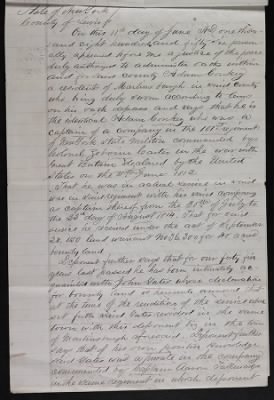 State of New York
County of Lewis ss
On this 11th day of June A.D. one thous
and eight hundred and fifty six person
ally appeared before me a justice of the peace
duly authorized to administer oaths within
and for said county Adam Conkey
a resident of Martinsburgh in said county
who being duly sworn according to law
on his oath deposes and says that he is
the identical Adam Conkey who was a
captain of a company in the 101st regiment
of New York State Militia commanded by
Colonel in the war with
Great Britain declared by the United
States on the 18th June 1812.
That he was in actual service in said
war in said regiment with his said company
as captain thereof from the 30th of July to
the 23d day of August 1814. That for said
service he received under the act of September
28, 1850 land warrant No. for 40 acres
bounty land.
Deponent further says that for over forty five
years last passed he has been intimately ac
quainted with John Gates whose declaration
for bounty land is hereunto annexed. That
at the time of the rendition of the service when
set forth said Gates resided in the same
town with this deponent in the town
of Martinsburgh aforesaid. Deponent further
says that of his own positive knowledge
said Gates was a private in the company
commanded by Captain
in the same regiment in which deponent